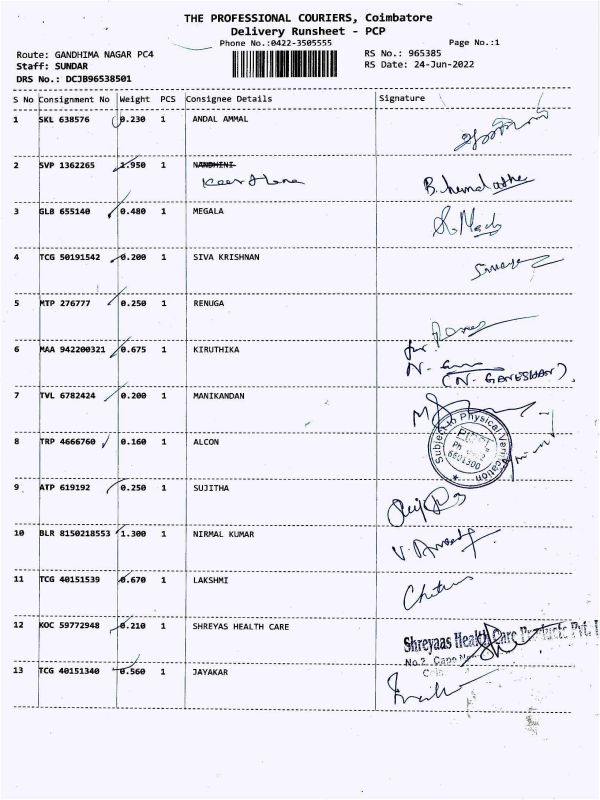 THE PROFESSIONAL COURIERS, Coimbatore
Delivery Runsheet - PCP
Phone No.:0422-3505555
Page No.:1
Route: GANDHIMA NAGAR PC4
RS No.: 965385
Staff: SUNDAR
RS Date: 24-Jun-2022
DRS No.: DCJB96538501
S No Consignment No Weight PCS Consignee Details Signature
1 SKL 638576 0.230 1 ANDAL AMMAL
2 SVP 1362265 1.950 1 NANDHINI
B. hemalatha
3 GLB 655140 0.480 1 MEGALA
4 TCG 50191542 0.200 1 SIVA KRISHNAN
5 MTP 276777 0.250 1 RENUGA
6 MAA 942200321 0.675 1 KIRUTHIKA
for
(N. GANESHAN).
7 TVL 6782424 0.200 1 MANIKANDAN
8 TRP 4666760 0.160 1 ALCON
Subject to Physical Verification
Ph
6601300
9 ATP 619192 0.250 1 SUJITHA
10 BLR 8150218553 1.300 1 NIRMAL KUMAR
11 TCG 40151539 0.670 1 LAKSHMI
12 KOC 59772948 0.210 1 SHREYAS HEALTH CARE
Shreyaas Health Care Products Pvt.
No.2,
13 TCG 40151340 0.560 1 JAYAKAR